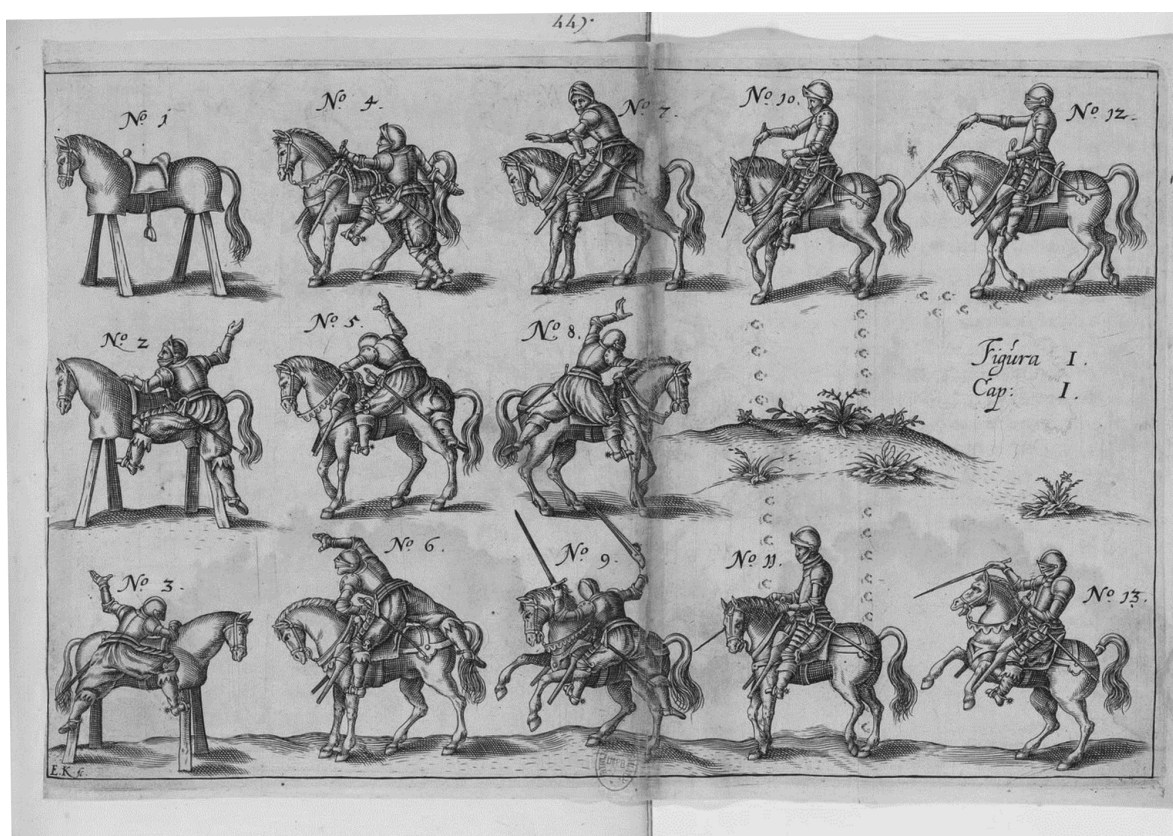 447.
No 1
No 4.
No 7.
No 10.
No 12.
No 2
No 5.
No 8.
Figura I.
Cap: I.
No 3.
No 6.
No 9.
No 11.
No 13.
E. K fc.